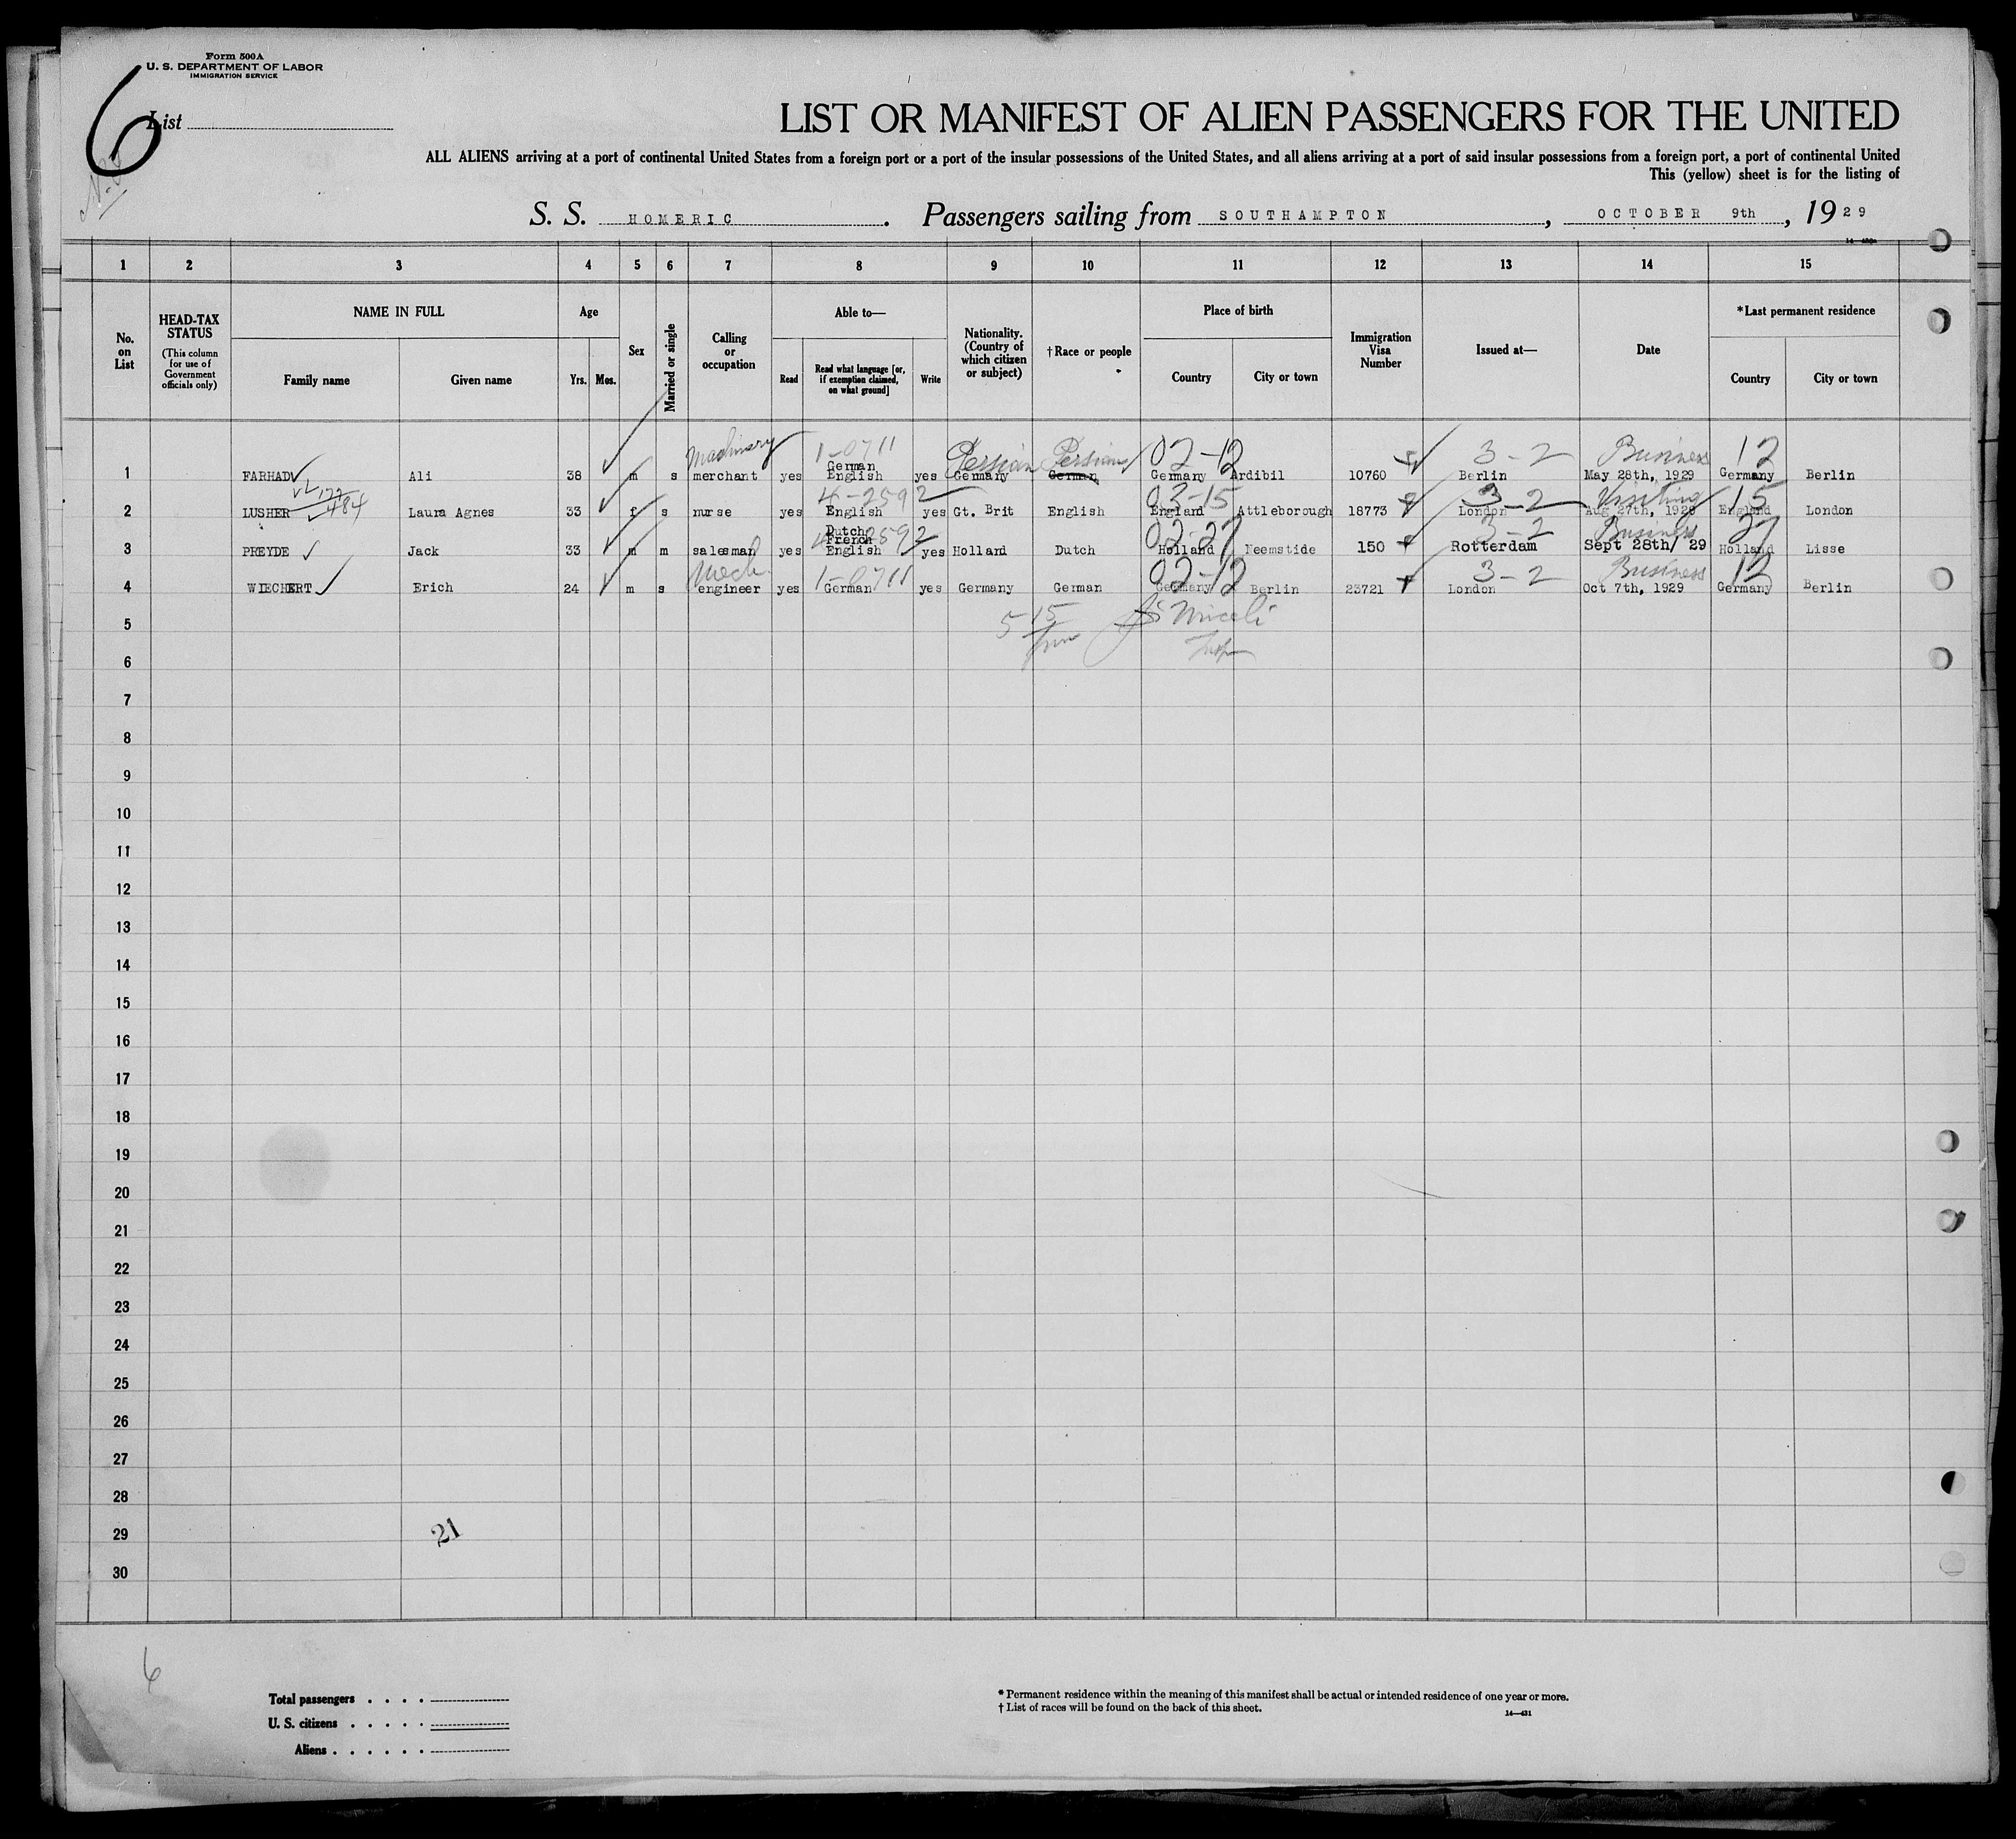 Form 500A
U. S. DEPARTMENT OF LABOR
IMMIGRATION SERVICE
6
List
LIST OR MANIFEST OF ALIEN PASSENGERS FOR THE UNITED
ALL ALIENS arriving at a port of continental United States from a foreign port or a port of the insular possessions of the United States, and all aliens arriving at a port of said insular possessions from a foreign port, a port of continental United
This (yellow) sheet is for the listing of
S. S. HOMERIC. Passengers sailing from SOUTHAMPTON, OCTOBER 9th, 1929
1 2 3 4 5 6 7 8 9 10 11 12 13 14 15
No. on List
HEAD-TAX STATUS
(This column for use of Government officials only)
NAME IN FULL
Family name Given name
Age
Yrs. Mos.
Sex
Married or single
Calling or occupation
Able to—
Read
Read what language [or, if exemption claimed, on what ground]
Write
Nationality. (Country of which citizen or subject)
†Race or people
Place of birth
Country City or town
Immigration Visa Number
Issued at—
Date
*Last permanent residence
Country City or town
Machinery 1-0711 Persian Persian 02-12 3-2 Business 12
German
1 FARHAD Ali 38 m s merchant yes English yes Germany German Germany Ardibil 10760 Berlin May 28th, 1929 Germany Berlin
177
484 4-2592 02-15 3-2 Visiting 15
2 LUSHER Laura Agnes 33 f s nurse yes English yes Gt. Brit English England Attleborough 18773 London Aug 27th, 1929 England London
Dutch
French 4-2592 02-27 3-2 Business 27
3 PREYDE Jack 33 m m salesman yes English yes Holland Dutch Holland Neemstide 150 Rotterdam Sept 28th/ 29 Holland Lisse
Mech. 1-0711 02-12 3-2 Business 12
4 WIECHERT Erich 24 m s engineer yes German yes Germany German Germany Berlin 23721 London Oct 7th, 1929 Germany Berlin
5 5 15
6
7
8
9
10
11
12
13
14
15
16
17
18
19
20
21
22
23
24
25
26
27
28
29 21
30
6
Total passengers . . . .
U. S. citizens . . . . .
Aliens . . . . . .
* Permanent residence within the meaning of this manifest shall be actual or intended residence of one year or more.
† List of races will be found on the back of this sheet.
14—421